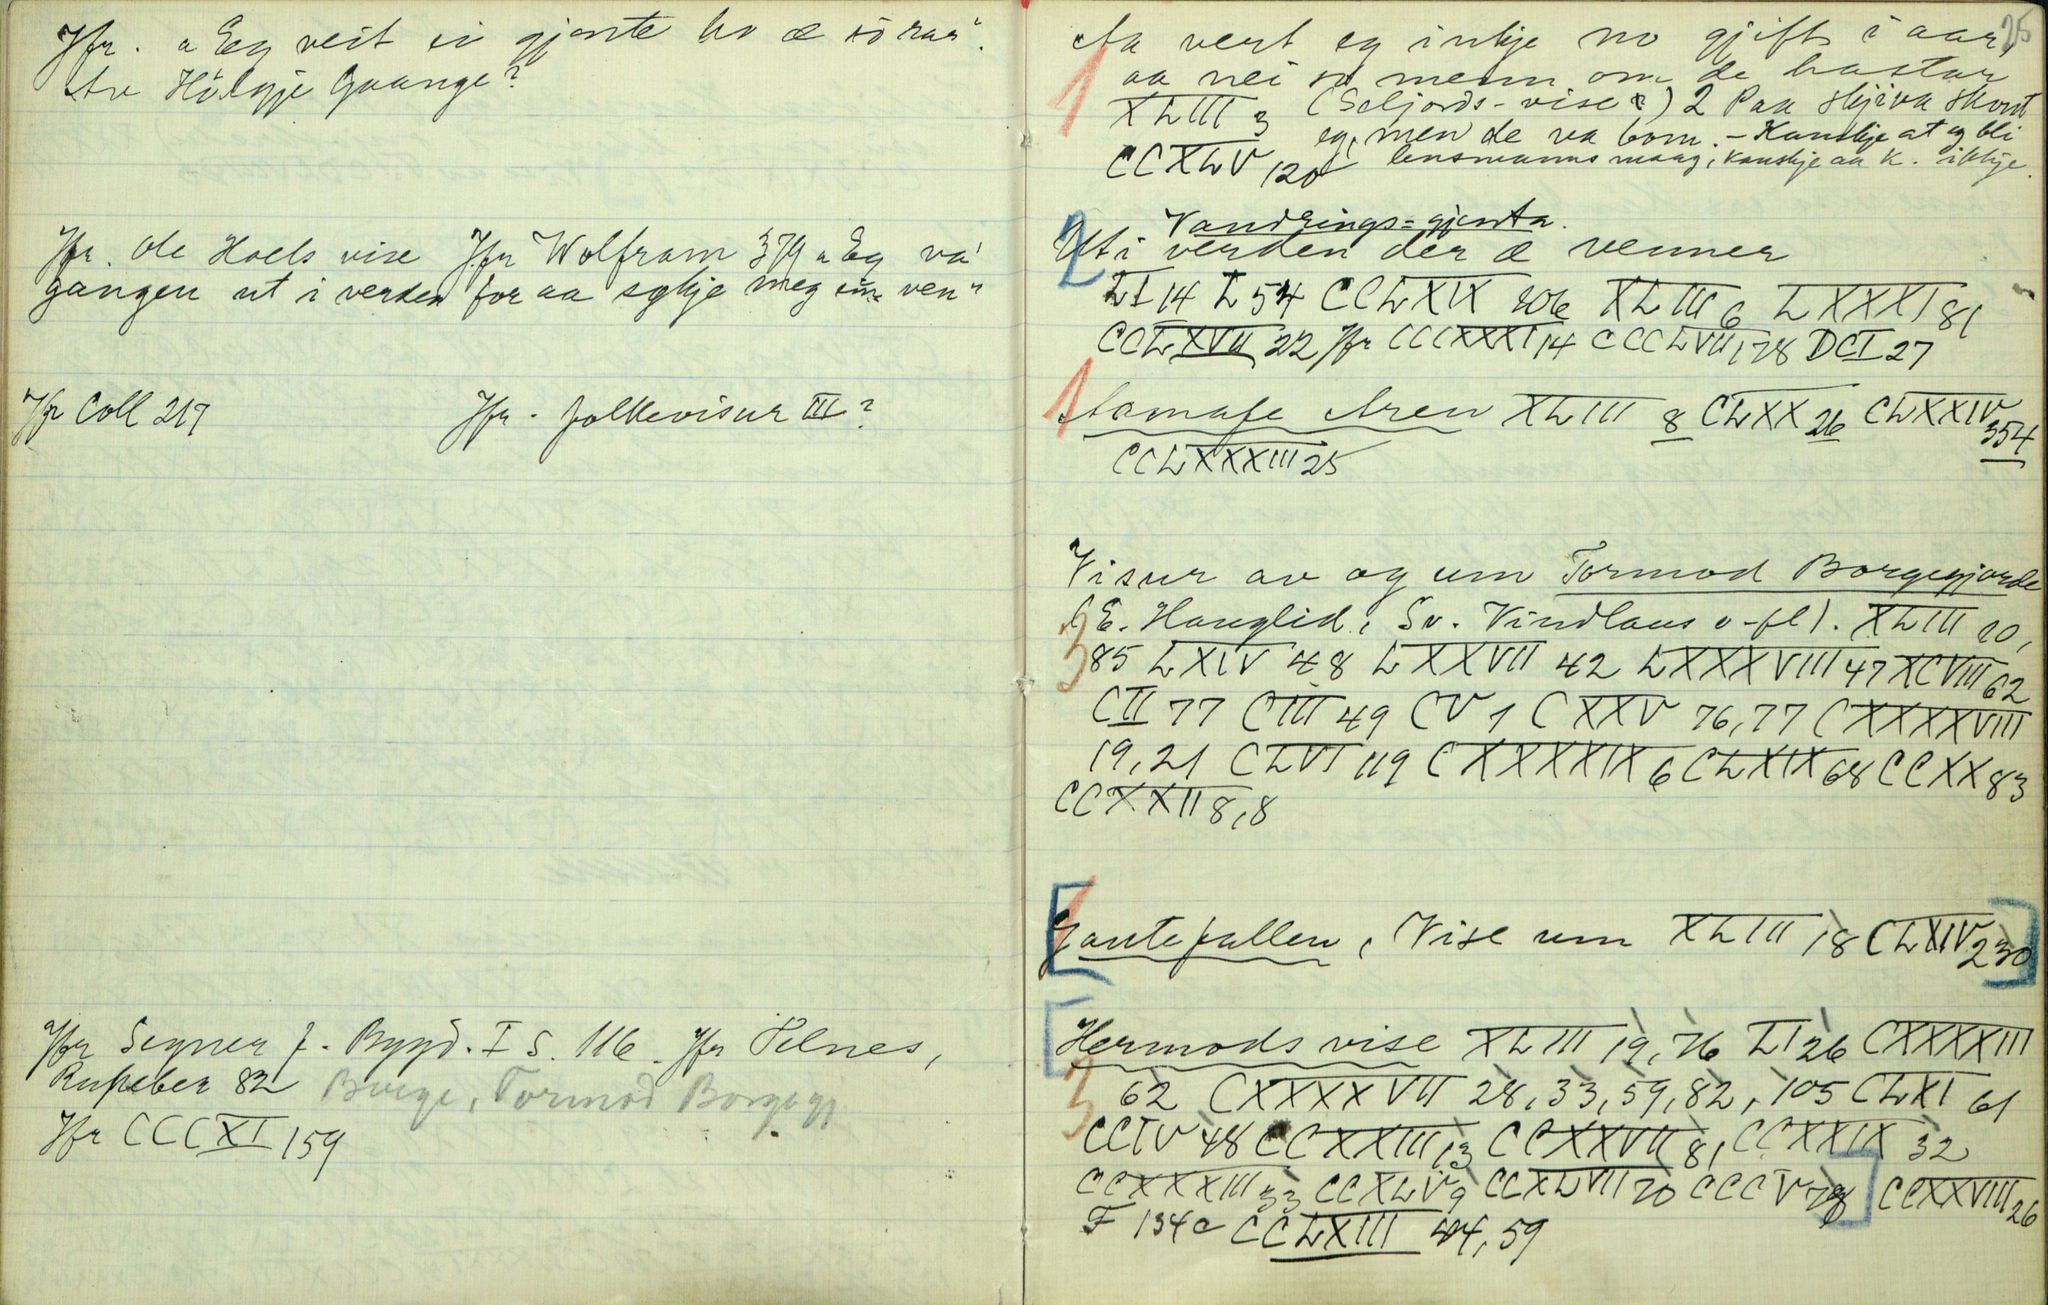 Jfr. "Eg veit ei gjente ho æ so rar".
Av Hølgje Gaange?
Jfr. Ole Hoels vise Jfr Wolfram 379 "Eg va'
gangen ut i verden for aa sykje meg ein ven"
Jfr Coll 217 Jfr. folkevisur III?
Jfr Segner f. Bygd. I S. 116. Jfr Telnes,
Rupeber 82 Borge, Tormod Borgegj
Jfr CCCXI 159
25
1 Aa vert eg inkje no gjift i aar,
aa nei so menn om de hastar
XLIII 3 (Seljords-vise?) 2 Paa skjiva skout
eg, men de va bom. - Kanskje at eg bli
CCXLV 120 lensmanns maag, kanskje aa k. ikkje.
Vandrings-gjenta.
2 Uti verden der æ venner
LI 14 L 54 CCLXIX 206 XLIII 6 LXXXI 81
CCLXVII 22 Jfr CCCXXXI 14 CCCLVII, 78 DCI 27
1 Aamafe Aren XLIII 8 CLXX 26 CLXXIV 354
CCLXXXIII 25
Visur av og um Tormod Borgegjorde
(E. Hauglid, Sv. Vindlaus o-fl). XLIII 10,
3 85 LXIV 48 LXXVII 42 LXXXVIII 47 XCVIII 62
CII 77 CIII 49 CV 1 CXXV 76, 77 CXXXXVIII
19, 21 CLVI 119 CXXXXIX 6 CLXIX 68 CCXX 83
CCXXII 8, 8
[1 Gautefallen, Vise um XLIII 18 CLXIV 230]
[Hermods vise XLIII 19, 76 LI 26 CXXXXIII
3 62 CXXXXVII 28, 33, 59, 82, 105 CLXI 61
CCIV 48 CCXXIII 13 CCXXVII 81 CCXXIX 32
CCXXXIII 33 CCXLV 9 CCXLVII 20 CCCV 78] CCXXVIII 26
F 134c CCLXIII 44, 59